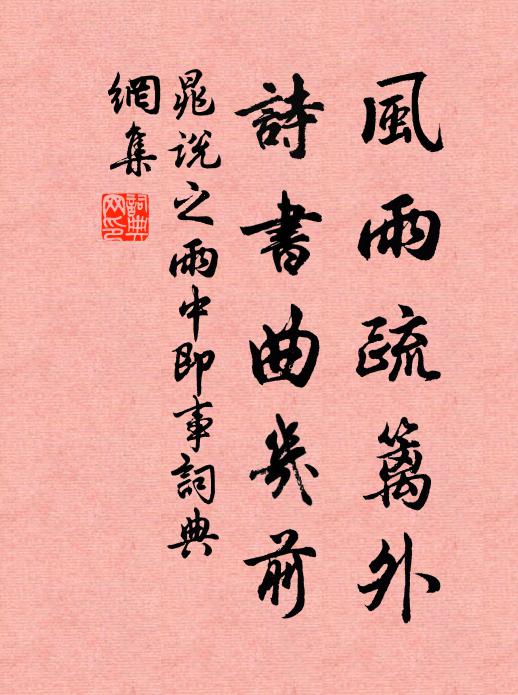 風雨疏籬外
詩書曲几前
晁說之雨中即事詞典
網集
詞典網印